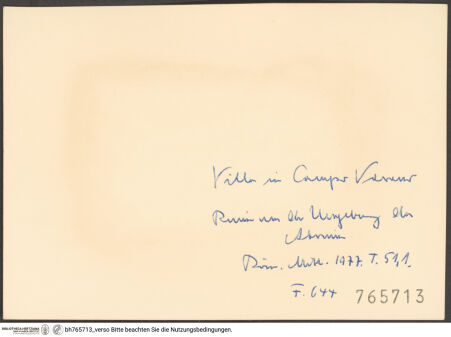 Villa in Campo Varano
Ruin in der Umgebung des
Röm. Mitt. 1977. T. 51,1.
F. 644 765713
bh765713_verso Bitte beachten Sie die Nutzungsbedingungen.